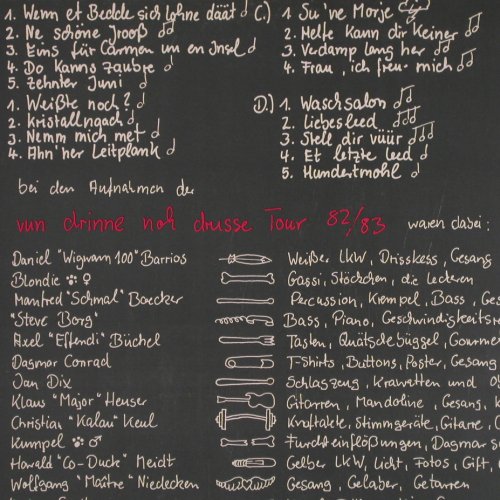 1. Wenn et Bedde sich lohne däät
2. Ne schöne Jrooß
3. Eins für Carmen un en Insel
4. Do kanns zaubre
5. Zehnter Juni
1. Weißte noch?
2. Kristallnaach
3. Nemm mich met
4. Ahn 'ner Leitplank
C.) 1. Su 've Morje
2. Helfe kann dir keiner
3. Verdamp lang her
4. Frau, ich freu mich
D.) 1. Waschsalon
2. Liebesleed
3. Stell dir vüür
4. Et letzte Leed
5. Hundertmohl
bei den Aufnahmen der
vun drinne noh drusse Tour 82/83 waren dabei:
Daniel "Wigwam 100" Barrios Weißer LKW, Drisskess, Gesang
Blondie ♀ Gassi, Stöckchen, die Leckeren
Manfred "Schmal" Boecker Percussion, Krempel, Bass, Ges
"Steve Borg" Bass, Piano, Geschwindigkeits
Axel "Effendi" Büchel Tasten, Quätschebüggel, Gourme
Dagmar Conrad T-Shirts, Buttons, Poster, Gesang
Jan Dix Schlagzeug, Krawatten und
Klaus "Major" Heuser Gitarren, Mandoline, Gesang, K
Christian "Kalau" Keul Kraftakte, Stimmgeräte, Gitarre, C
Kumpel ♂ Furchteinflößungen, Dagmar s
Harald "Co-Duck" Meidt Gelber LKW, Licht, Fotos, Gift,
Wolfgang "Maître" Niedecken Gesang, Gelaber, Getarren